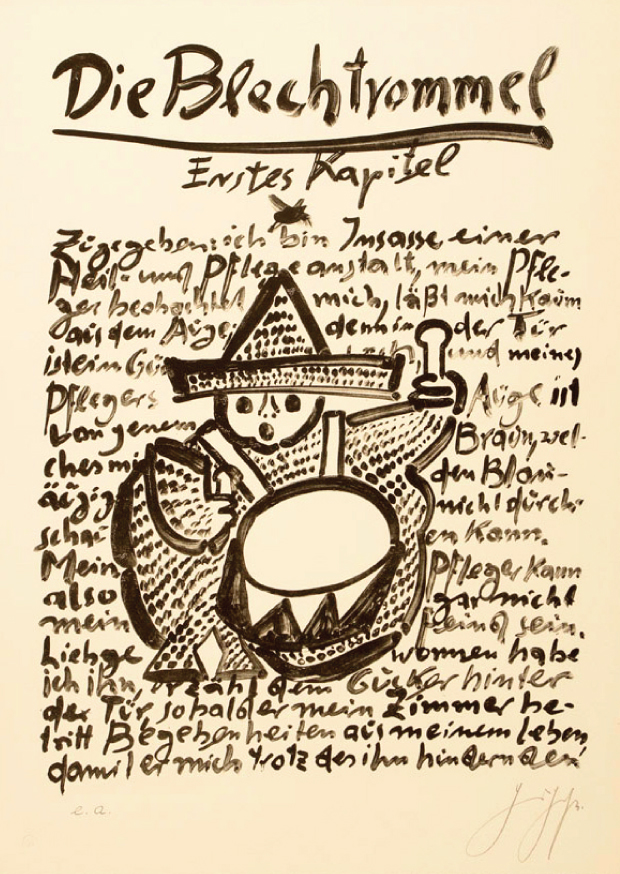 Die Blechtrommel
Erstes Kapitel
Zugegeben: ich bin Insasse einer
Heil- und Pflegeanstalt, mein Pfle-
ger beobachtet mich, läßt mich kaum
aus dem Auge; denn in der Tür
ist ein und meines
Pflegers Auge ist
von jenem Braun, wel-
ches den Blau-
äugig nicht durch-
schau en kann.
Mein Pfleger kann
also gar nicht
mein Feind sein.
Liebge wonnen habe
ich ihn, erzähl dem Gucker hinter
der Tür, sobald er mein Zimmer be-
tritt Begebenheiten aus meinem Leben
damit er mich trotz des ihn hindernden
e.a.